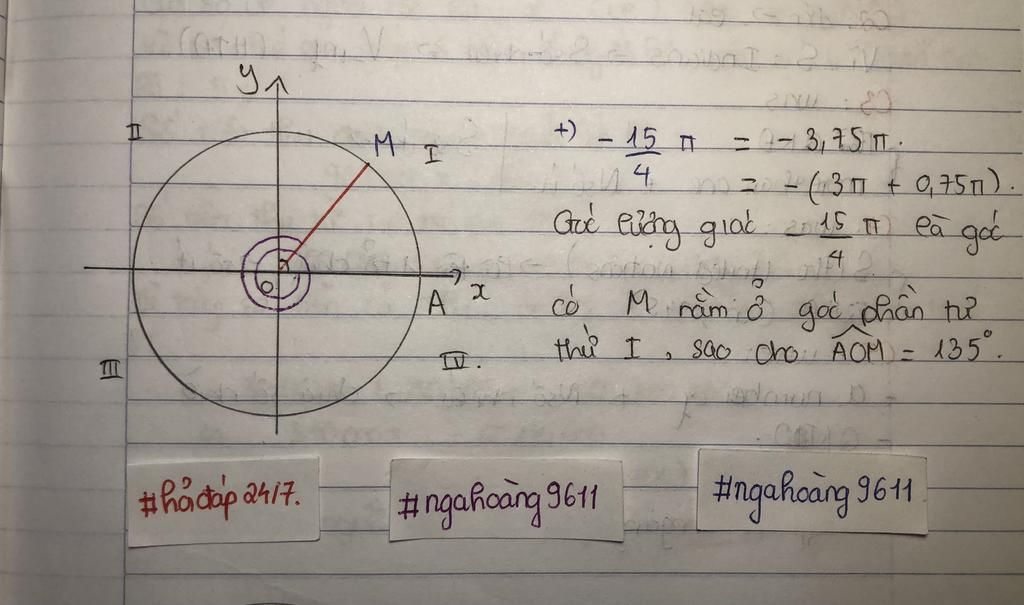 y
II
M
I
O
A
x
III
IV.
+) - 15/4 π = - 3,75 π.
= - (3π + 0,75π).
Góc lượng giác - 15/4 π là góc
có M nằm ở góc phần tư
thứ I, sao cho AOM = 135°.
#hỏiđáp 24/7.
#ngahoàng9611
#ngahoàng9611